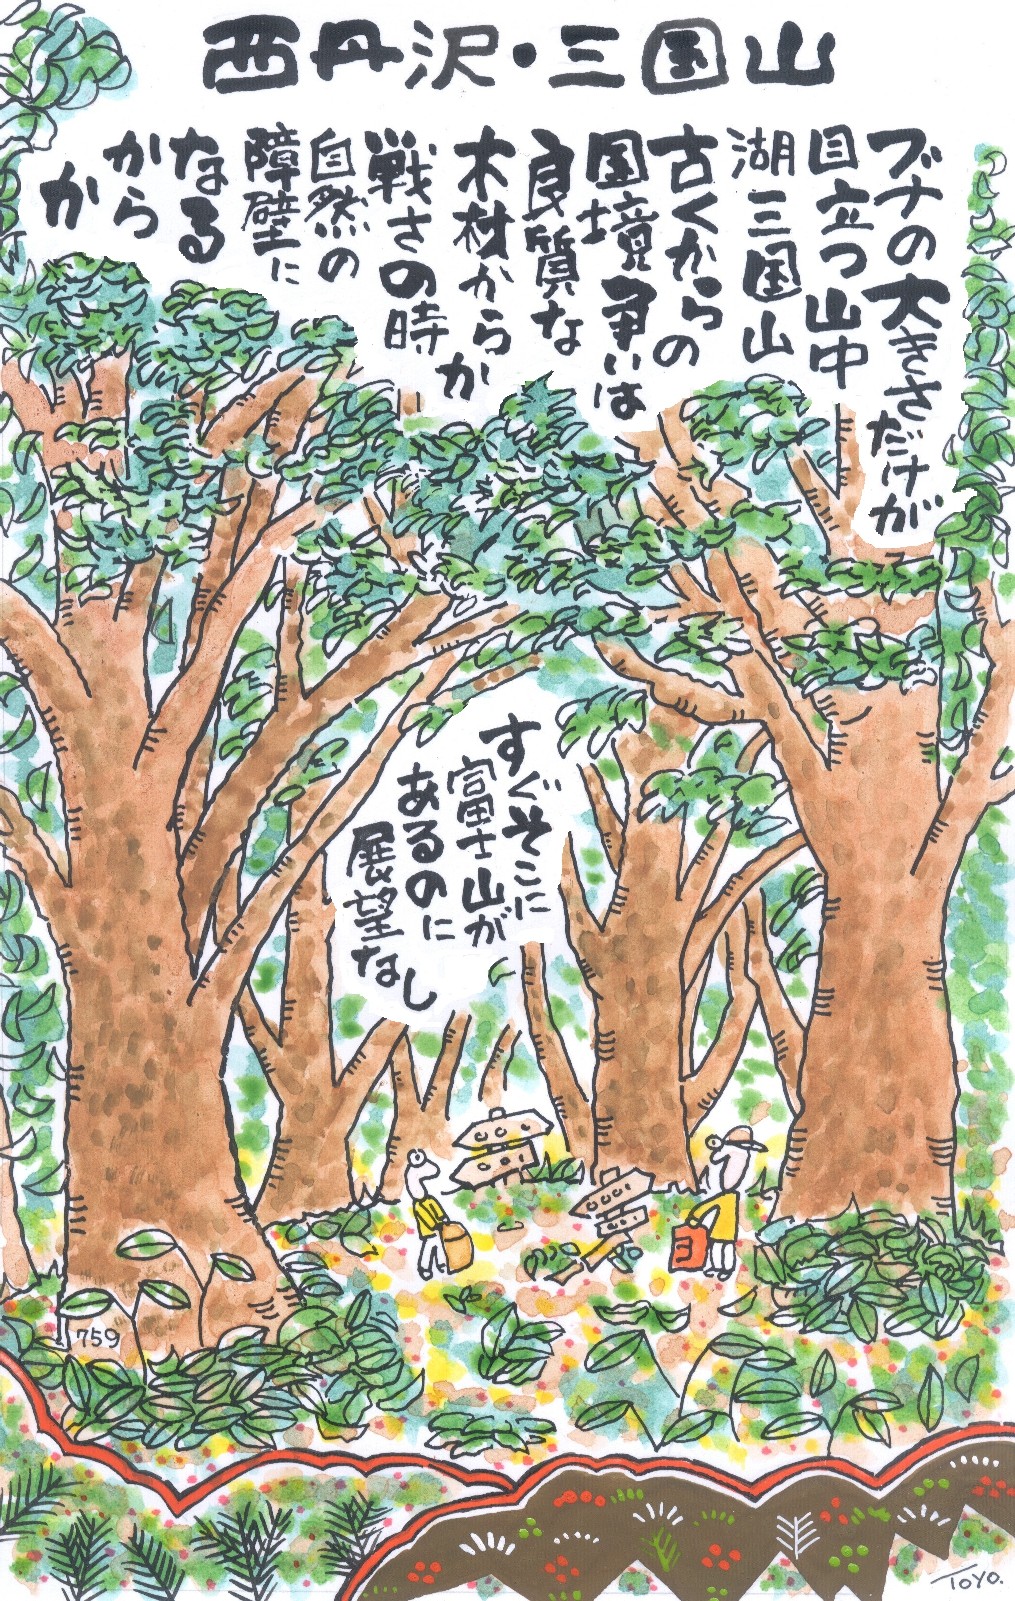 西丹沢・三国山
ブナの大きさだけが
目立つ山中
湖三国山
古くからの
国境争いは
良質な
木材からか
戦さの時
自然の
障壁に
なる
から
か
すぐそこに
富士山が
あるのに
展望なし
759
TOYO.